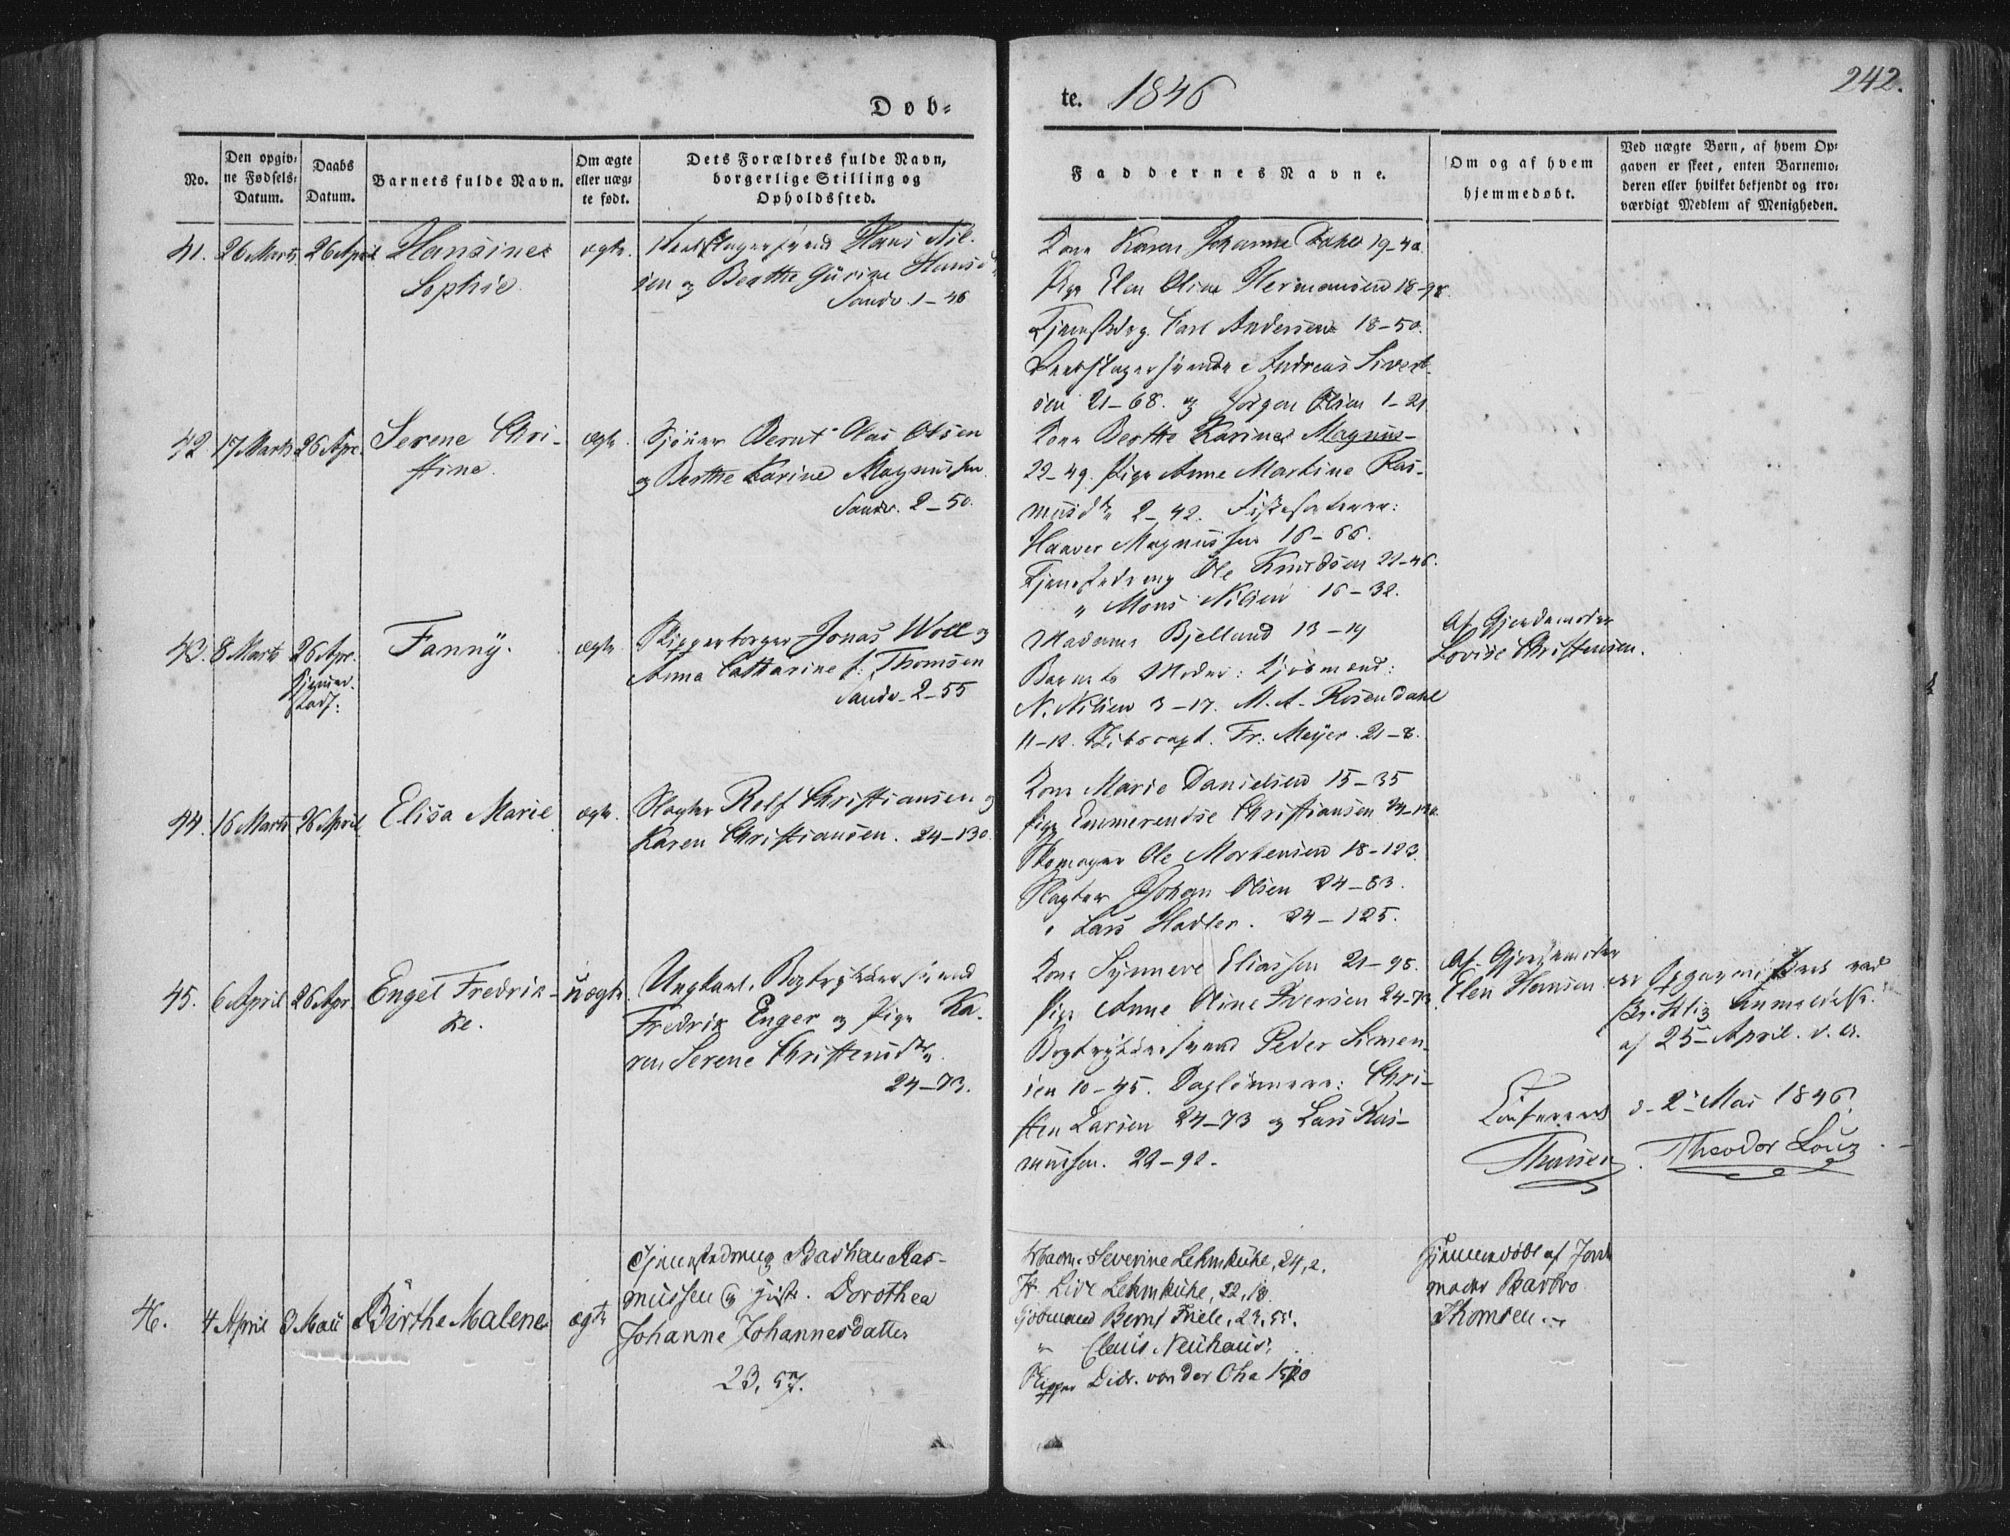 Døb-
te. 1846
242.
No.
Den opgiv-
ne Fødsels-
Datum.
Daabs
Datum.
Barnets fulde Navn.
Om ægte
eller uæg-
te født.
Dets Forældres fulde Navn,
borgerlige Stilling og
Opholdssted.
Faddernes Navne.
Om og af hvem
hjemmedøbt.
Ved uægte Børn, af hvem Op-
gaven er skeet, enten Barnemo-
deren eller hvilket bekjendt og tro-
værdigt Medlem af Menigheden.
41. 26 Marts 26 April
Hansine
Sophie.
ægte.
Hans Nil-
sen og Berthe Gurine
Sandv. 1-46
Kone Karen Johanne 19-40
Pige Elen Oline Hermansen 18-98.
Tjenestedrg. Carl Andersen 18-50.
Andreas Sivert-
sen 21-68. og Jørgen Olsen 1-21
42. 17 Marts 26 Apr.
Serene Chri-
stine.
ægte.
Bernt Olai Olsen
og Berthe Karine Magnussen
Sandv. 2-50.
Kone Berthe Karine Magnus-
22-49. Pige Anne Martine Ras-
musdtr 2-42.
Haaver Magnussen 16-66.
Tjenestedreng Ole Knudsen 22-46.
" Mons Nilsen 16-32.
43. 8 Marts 26 Apr.
Fanny.
ægte.
Skipperborger Jonas Woll og
Anna Catharine f. Thomsen
Sandv. 2-55
Madame Bjelland 13-19
Barnets Moder: Kjøbmænd:
N. Nilsen 3-17. M. A. Rosendahl
11-12. Fr. Meyer. 21-8.
Af Gjordemoder
Lovise Christensen.
44. 16 Marts 26 April
Elisa Marie
ægte.
Slagter Rolf Christiansen og
Karen Christiansen. 24-130.
Kone Marie Danielsen 15-35
Pige Emmerendse Christiansen 24-130.
Skomager Ole Mortensen 18-123.
Slagter Johan Olsen 24-83.
" Lars Hadler. 24-125.
45. 6 April 26 Apr.
Engel Fredrik-
ke.
uægte.
Ungkarl, Bogtrykkersvend
Fredrik Enger og Pige Ka-
ren Serene Christensdtr
24-73.
Kone Synneve Eliassen 21-95.
Pige Anne Oline Iversen 24-73
Bogtrykkersvend Peder Simen-
sen 10-45. Daglønnere: Chri-
sten Larsen 24-73 og Lars Ras-
mussen. 22-92.
Af Gjordemoder
Elen Hansen
er Opgaven skeet ved
af 25 April. d. A.
Confereret d. 2 Mai 1846.
Theodor Louz
46. 4 April 3 Mai
Birthe Malene
ægte
Tjenestedreng Ras-
mussen og Dorothea
Johanne Johannesdatter
23, 57.
Madm. Severine Lehmkuhe, 24, 2.
Lehmkuhe, 22, 18.
Kjøbmand Bernt Friele, 23, 55.
" Claus Neuhaus;
Skipper Didr. von der Ohe
Hjemmedøbt af Jorde-
moder Barbro
Thomsen.